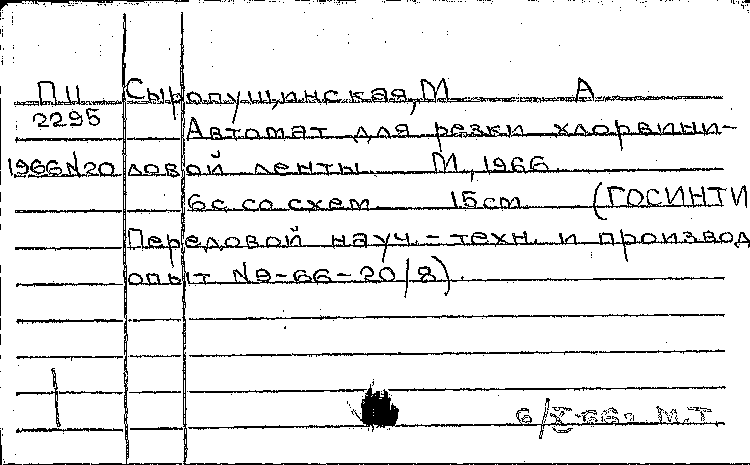 П11 Сыропущинская, М А
2295
Автомат для резки хлорвини-
1966 N20 ловой ленты. М, 1966
6с со схем 15см (ГОСИНТИ
Передовой науч.-техн. и производ
опыт N9-66-20/8).
6/X-66г М.Т.